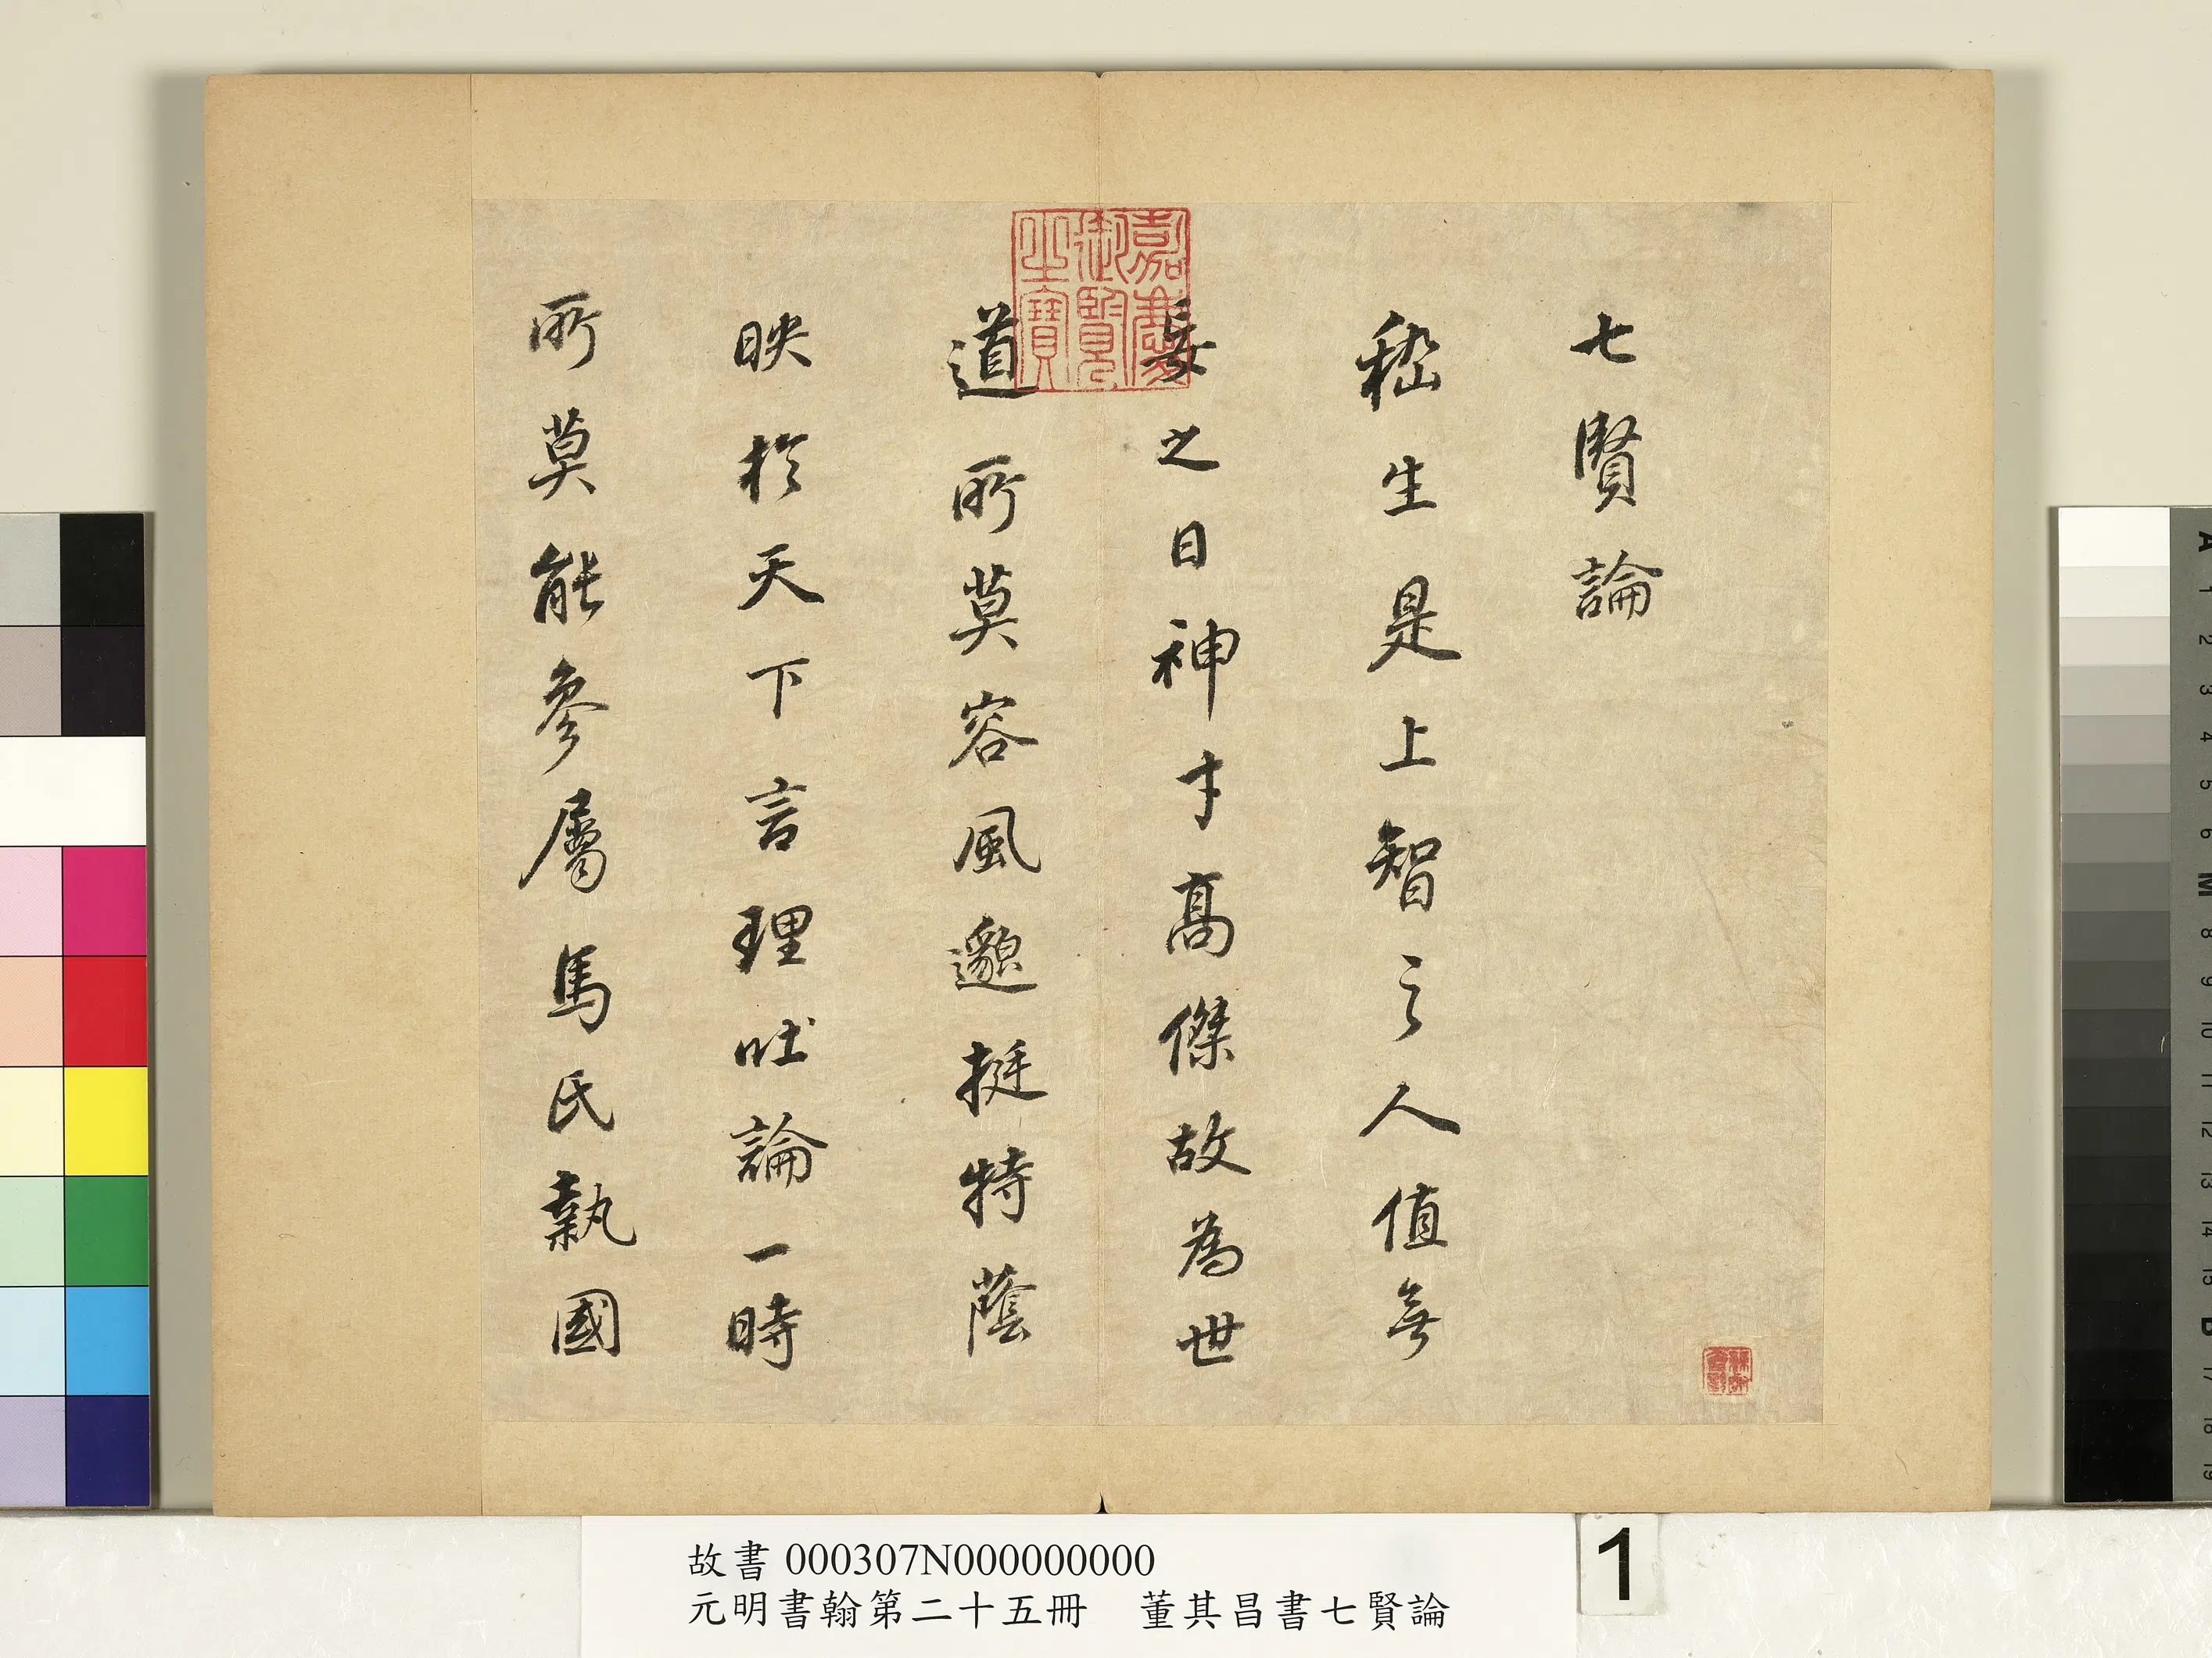 七賢論
嵇生是上智之人值無
妄之日神才高傑故為世
道所莫容風邈挺特蔭
映於天下言理吐論一時
所莫能參屬馬氏執國
嘉慶御覽之寶
故書 000307N000000000
元明書翰第二十五冊　董其昌書七賢論
1
A 1 2 3 4 5 6 M 8 9 10 11 12 13 14 15 B 17 18 19